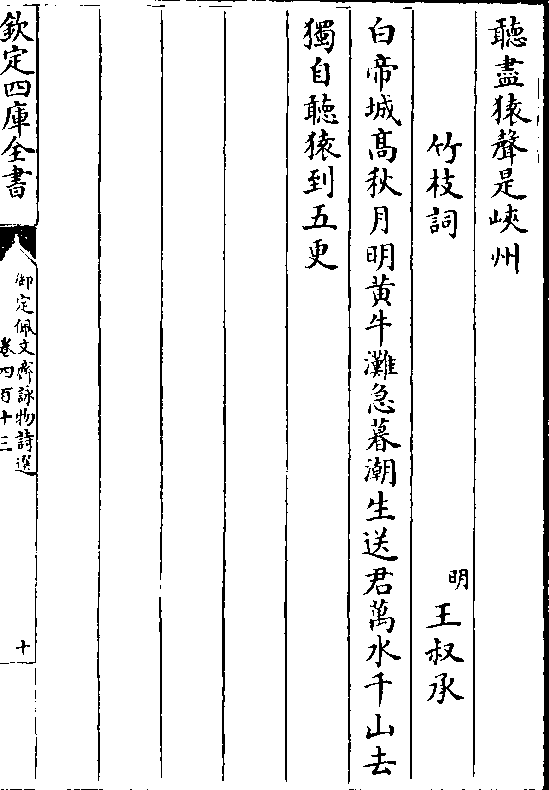 聽盡猿聲是峽州
竹枝詞
明王叔承
白帝城高秋月明黄牛灘急暮潮生送君萬水千山去
獨自聽猿到五更
欽定四庫全書
御定佩文齋詠物詩選
卷四百十三
十